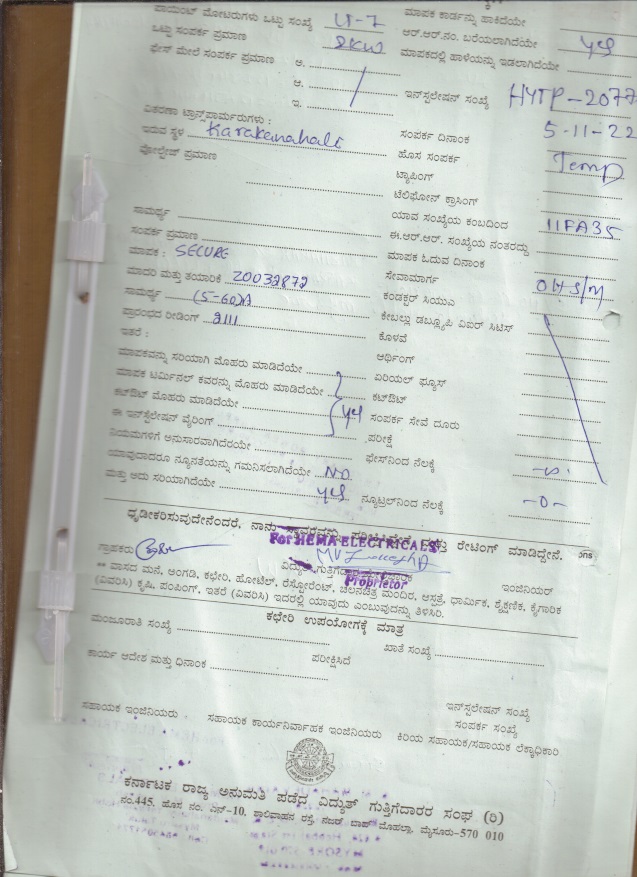 ಪಾಯಿಂಟ್ ಮೋಟರುಗಳು ಒಟ್ಟು ಸಂಖ್ಯೆ LT-7 ಮಾಪಕ ಕಾರ್ಡನ್ನು ಹಾಕಿದೆಯೇ
ಒಟ್ಟು ಸಂಪರ್ಕ ಪ್ರಮಾಣ 2KW ಆರ್.ಆರ್.ನಂ. ಬರೆಯಲಾಗಿದೆಯೇ yes
ಫೇಸ್ ಮೇಲೆ ಸಂಪರ್ಕ ಪ್ರಮಾಣ ಅ. ಮಾಪಕದಲ್ಲಿ ಹಾಳೆಯನ್ನು ಇಡಲಾಗಿದೆಯೇ
ಆ.
ಇ. ಇನ್‌ಸ್ಟಲೇಷನ್ ಸಂಖ್ಯೆ HYTP-2077
ವಿತರಣಾ ಟ್ರಾನ್ಸ್‌ಫಾರ್ಮರುಗಳು : ಸಂಪರ್ಕ ದಿನಾಂಕ 5-11-22
ಇರುವ ಸ್ಥಳ ಹೊಸ ಸಂಪರ್ಕ Temp
ವೋಲ್ಟೇಜ್ ಪ್ರಮಾಣ ಟ್ಯಾಪಿಂಗ್
ಟೆಲಿಫೋನ್ ಕ್ರಾಸಿಂಗ್
ಸಾಮರ್ಥ್ಯ ಯಾವ ಸಂಖ್ಯೆಯ ಕಂಬದಿಂದ 11FA35
ಸಂಪರ್ಕ ಪ್ರಮಾಣ ಈ.ಆರ್.ಆರ್. ಸಂಖ್ಯೆಯ ನಂತರದ್ದು
ಮಾಪಕ : SECURE ಮಾಪಕ ಓದುವ ದಿನಾಂಕ
ಮಾದರಿ ಮತ್ತು ತಯಾರಿಕೆ 20032872 ಸೇವಾಮಾರ್ಗ OH S/M
ಸಾಮರ್ಥ್ಯ (5-60)A ಕಂಡಕ್ಟರ್ ಸಿಯುವಿ
ಪ್ರಾರಂಭದ ರೀಡಿಂಗ್ 2111 ಕೇಬಲ್ಲು ಡಬ್ಲ್ಯೂಪಿ ವಿಐರ್ ಸಿಟಿಸ್
ಇತರೆ : ಕೊಳವೆ
ಮಾಪಕವನ್ನು ಸರಿಯಾಗಿ ಮೊಹರು ಮಾಡಿದೆಯೇ ಆರ್ಥಿಂಗ್
ಮಾಪಕ ಟರ್ಮಿನಲ್ ಕವರನ್ನು ಮೊಹರು ಮಾಡಿದೆಯೇ ಏರಿಯಲ್ ಫ್ಯೂಸ್
ಕಟ್‌ಔಟ್ ಮೊಹರು ಮಾಡಿದೆಯೇ ಕಟ್‌ಔಟ್
ಈ ಇನ್‌ಸ್ಟಲೇಷನ್ ವೈರಿಂಗ್ yes ಸಂಪರ್ಕ ಸೇವೆ ದೂರು
ನಿಯಮಗಳಿಗೆ ಅನುಸಾರವಾಗಿದೆಯೇ ಪರೀಕ್ಷೆ
ಯಾವುದಾದರೂ ನ್ಯೂನತೆಯನ್ನು ಗಮನಿಸಲಾಗಿದೆಯೇ NO ಫೇಸ್‌ನಿಂದ ನೆಲಕ್ಕೆ
ಮತ್ತು ಅದು ಸರಿಯಾಗಿದೆಯೇ yes ನ್ಯೂಟ್ರಲ್‌ನಿಂದ ನೆಲಕ್ಕೆ -0-
ಧೃಡೀಕರಿಸುವುದೇನೆಂದರೆ, ನಾನು ರೇಟಿಂಗ್ ಮಾಡಿದ್ದೇನೆ.
For HEMA ELECTRICALS
ಗ್ರಾಹಕರು ವಿದ್ಯುತ್ ಇಂಜಿನಿಯರ್
Proprietor
** ವಾಸದ ಮನೆ, ಅಂಗಡಿ, ಕಛೇರಿ, ಹೋಟೆಲ್, ರೆಸ್ಟೋರೆಂಟ್, ಚಲನಚಿತ್ರ ಮಂದಿರ, ಆಸ್ಪತ್ರೆ, ಧಾರ್ಮಿಕ, ಶೈಕ್ಷಣಿಕ, ಕೈಗಾರಿಕ
(ವಿವರಿಸಿ) ಕೃಷಿ, ಪಂಪಿಂಗ್, ಇತರೆ (ವಿವರಿಸಿ) ಇದರಲ್ಲಿ ಯಾವುದು ಎಂಬುವುದನ್ನು ತಿಳಿಸಿರಿ.
ಕಛೇರಿ ಉಪಯೋಗಕ್ಕೆ ಮಾತ್ರ
ಮಂಜೂರಾತಿ ಸಂಖ್ಯೆ ಖಾತೆ ಸಂಖ್ಯೆ
ಕಾರ್ಯ ಆದೇಶ ಮತ್ತು ಧಿನಾಂಕ ಪರೀಕ್ಷಿಸಿದೆ
ಇನ್‌ಸ್ಪಲೇಷನ್ ಸಂಖ್ಯೆ
ಸಂಪರ್ಕ ಸಂಖ್ಯೆ
ಸಹಾಯಕ ಇಂಜಿನಿಯರು ಸಹಾಯಕ ಕಾರ್ಯನಿರ್ವಾಹಕ ಇಂಜಿನಿಯರು ಕಿರಿಯ ಸಹಾಯಕ/ಸಹಾಯಕ ಲೆಕ್ಕಾಧಿಕಾರಿ
ಕರ್ನಾಟಕ ರಾಜ್ಯ ಅನುಮತಿ ಪಡೆದ ವಿದ್ಯುತ್ ಗುತ್ತಿಗೆದಾರರ ಸಂಘ (ರಿ)
ನಂ.445, ಹೊಸ ನಂ. ಎನ್-10, ಶಾಲಿವಾಹನ ರಸ್ತೆ, ನಜರ್ ಬಾದ್ ಮೊಹಲ್ಲಾ, ಮೈಸೂರು-570 010